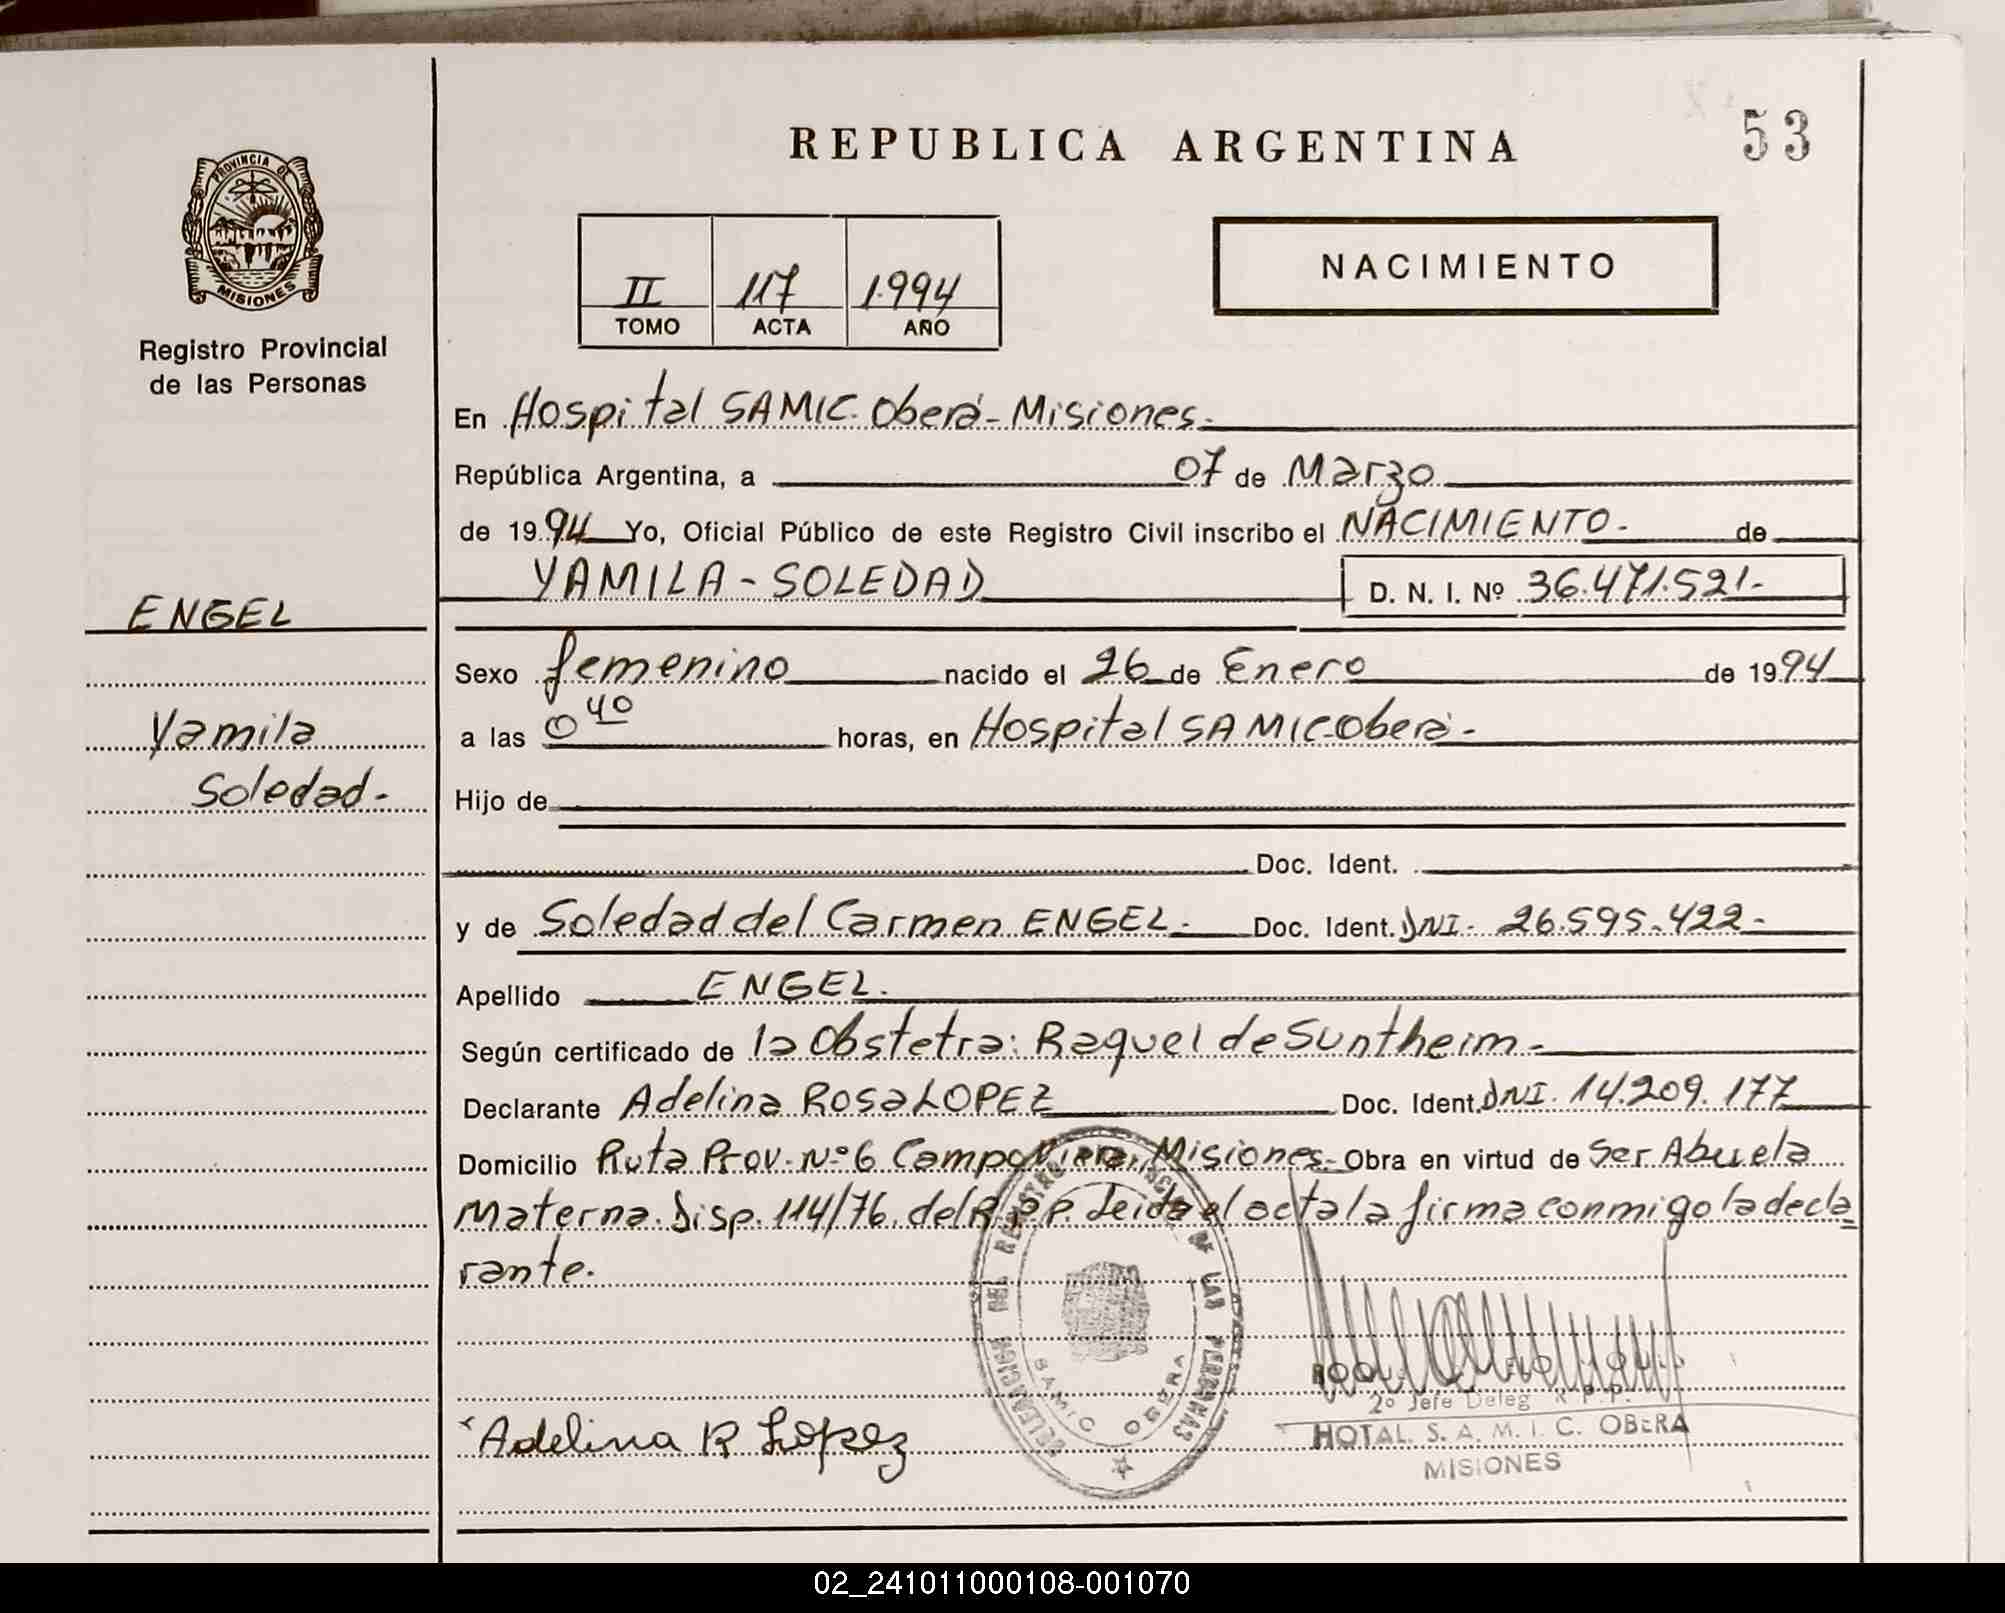 REPUBLICA ARGENTINA
53
PROVINCIA DE
MISIONES
Registro Provincial
de las Personas
II 117 1994
TOMO ACTA AÑO
NACIMIENTO
En Hospital SAMIC. Oberá - Misiones.
República Argentina, a 07 de Marzo
de 1994 Yo, Oficial Público de este Registro Civil inscribo el NACIMIENTO. de
YAMILA - SOLEDAD D. N. I. Nº 36.471.521-
ENGEL
Yamila
Soledad-
Sexo femenino nacido el 26 de Enero de 1994
a las 0 40 horas, en Hospital SAMIC-Oberá-
Hijo de
Doc. Ident.
y de Soledad del Carmen ENGEL- Doc. Ident. DNI- 26.595.422-
Apellido ENGEL.
Según certificado de la Obstetra: Raquel de Suntheim-
Declarante Adelina ROSA LOPEZ Doc. Ident. DNI. 14.209.177
Domicilio Ruta Prov. Nº 6 Campo Viera, Misiones- Obra en virtud de Ser Abuela
Materna. Disp. 114/76. del R.P.P. Leida el acta la firma conmigo la decla
rante.
DELEGACION DEL REGISTRO PROVINCIAL DE LAS PERSONAS
SAMIC OBERA
Adelina R López
2º Jefe Deleg R.P.P.
HOTAL. S. A. M. I. C. OBERA
MISIONES
02_241011000108-001070